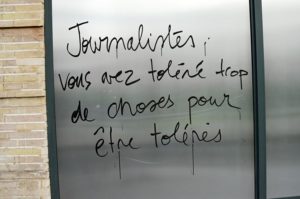 Journalistes,
vous avez toléré trop
de choses pour
être tolérés